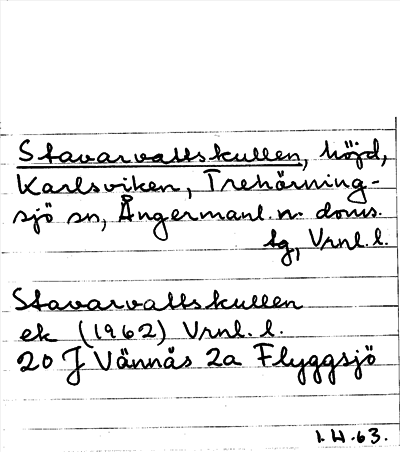 Stavarvattskullen, höjd,
Karlsviken, Trehörning-
sjö sn, Ångermanl. n. doms.
tg, Vrnl. l.
Stavarvattskullen
ek (1962) Vrnl. l.
20 J Vännäs 2a Flyggsjö
I.H.63.